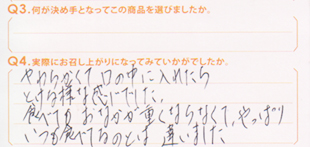 Q3.何が決め手となってこの商品を選びましたか。
Q4.実際にお召し上がりになってみていかがでしたか。
やわらかくて口の中に入れたら
とける様な感じでした。
食べても おなかが重くならなくて、やっぱり
いつも食べてるのとは 違いました